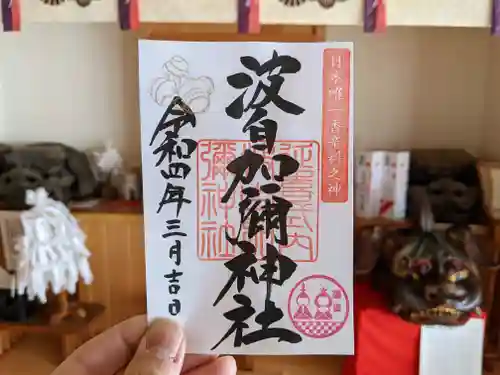 日本唯一香辛料之神
波自加彌神社
延喜式内
波自加
彌神社
令和四年三月吉日